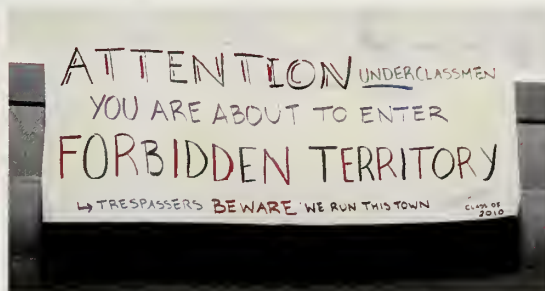 ATTENTION UNDERCLASSMEN
YOU ARE ABOUT TO ENTER
FORBIDDEN TERRITORY
↳ TRESPASSERS BEWARE WE RUN THIS TOWN
CLASS OF
2010